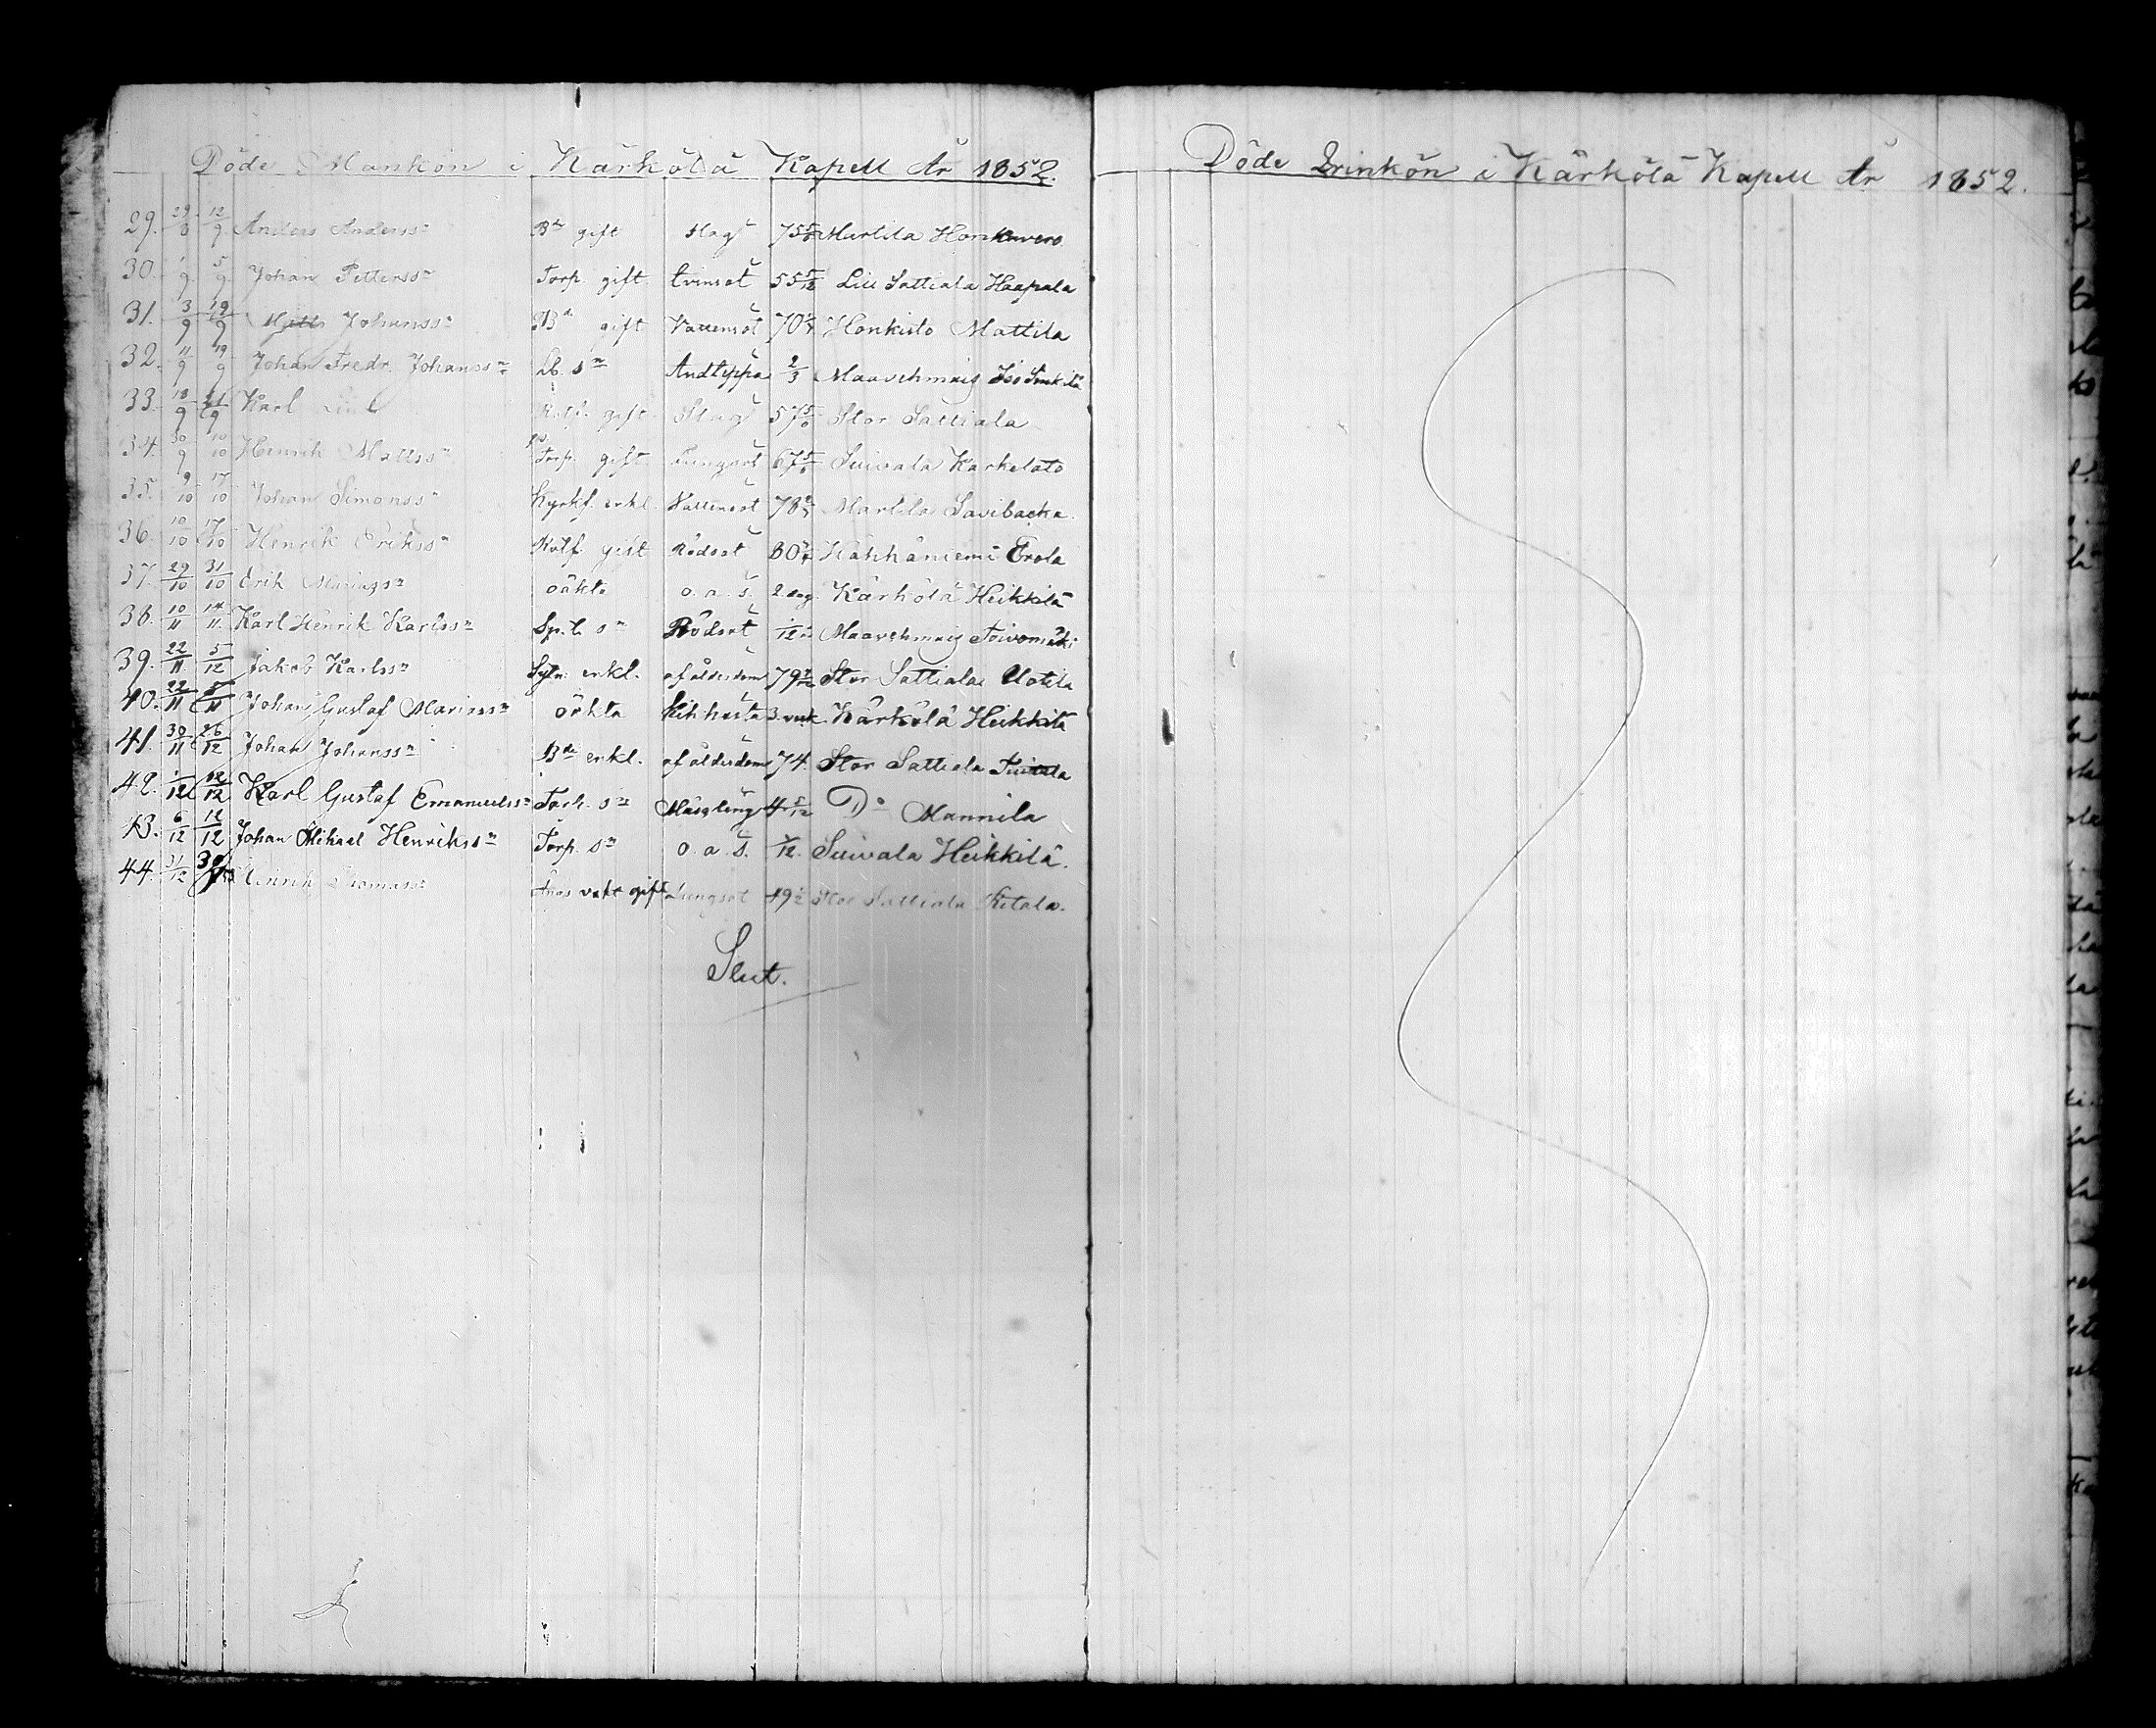 Döde Mankön i Kärkölä Kapell År 1852.
29. 29/8 12/9 Anders Anderss:n B:de gift Mag s: 75 Marttila Honkavero
30. 1/9 5/9 Johan Petterss:n Torp. gift tvinsot 55 5/12 Lill Sattiala Haapala
31. 3/9 19/9 Matts Johanss:n B:de gift Vattensot 70 Honkisto Mattila
32. 11/9 19/9 Johan Fredr. Johanss:n Lb. s:n Andtäppa 2/3 Maavehmaig Iso
33. 18/9 21/9 Karl gift Slag 57 5/6 Stor Sattiala
34. 30/9 10/10 Henrik Mattss:n Torp. gift Lungsot 67 5/6 Suivala Karkelato
35. 9/10 17/10 Johan Simonss:n Kyrkf. enkl. Vattensot 78 Marttila Savibacka
36. 10/10 17/10 Henrik Erikss:n Rotf. gift Rödsot 80 Hähhäniemi Erola
37. 29/10 31/10 Erik oäkta o. a. s. 2. dag. Kärkölä Heikkilä
38. 10/11 14/11 Karl Henrik Karlss:n Sp.l. s:n Rödsot 1/12 Maavehmaig Toivomäki
39. 22/11 5/12 Jakob Karlss:n enkl. af ålderdom 79 Stor Sattiala Uotila
40. 22/11 Johan Gustaf Mariass:n oäkta Kikhosta 3. veck. Kärkölä Heikkilä
41. 30/11 26/12 Johan Johanss:n B:de enkl. af ålderdom 74 Stor Sattiala
42. 1/12 12/12 Karl Gustaf Emanuelss:n s:n Mässling 4 5/12 D:o Mannila
43. 6/12 12/12 Johan Mikael Henrikss:n Torp. s:n o. a. s. 1/12. Suivala Heikkilä.
44. 31/12 Henrik Thomass:n gift Lungsot 49 Stor Sattiala
Slut.
Döde Qvinkön i Kärkölä Kapell År 1852.